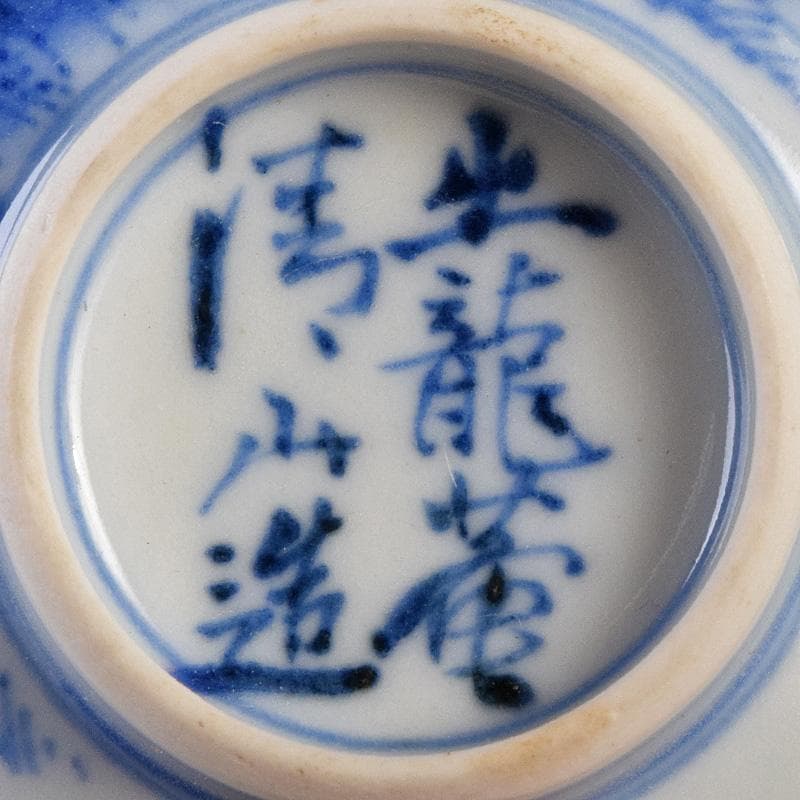 龍菴
清山造